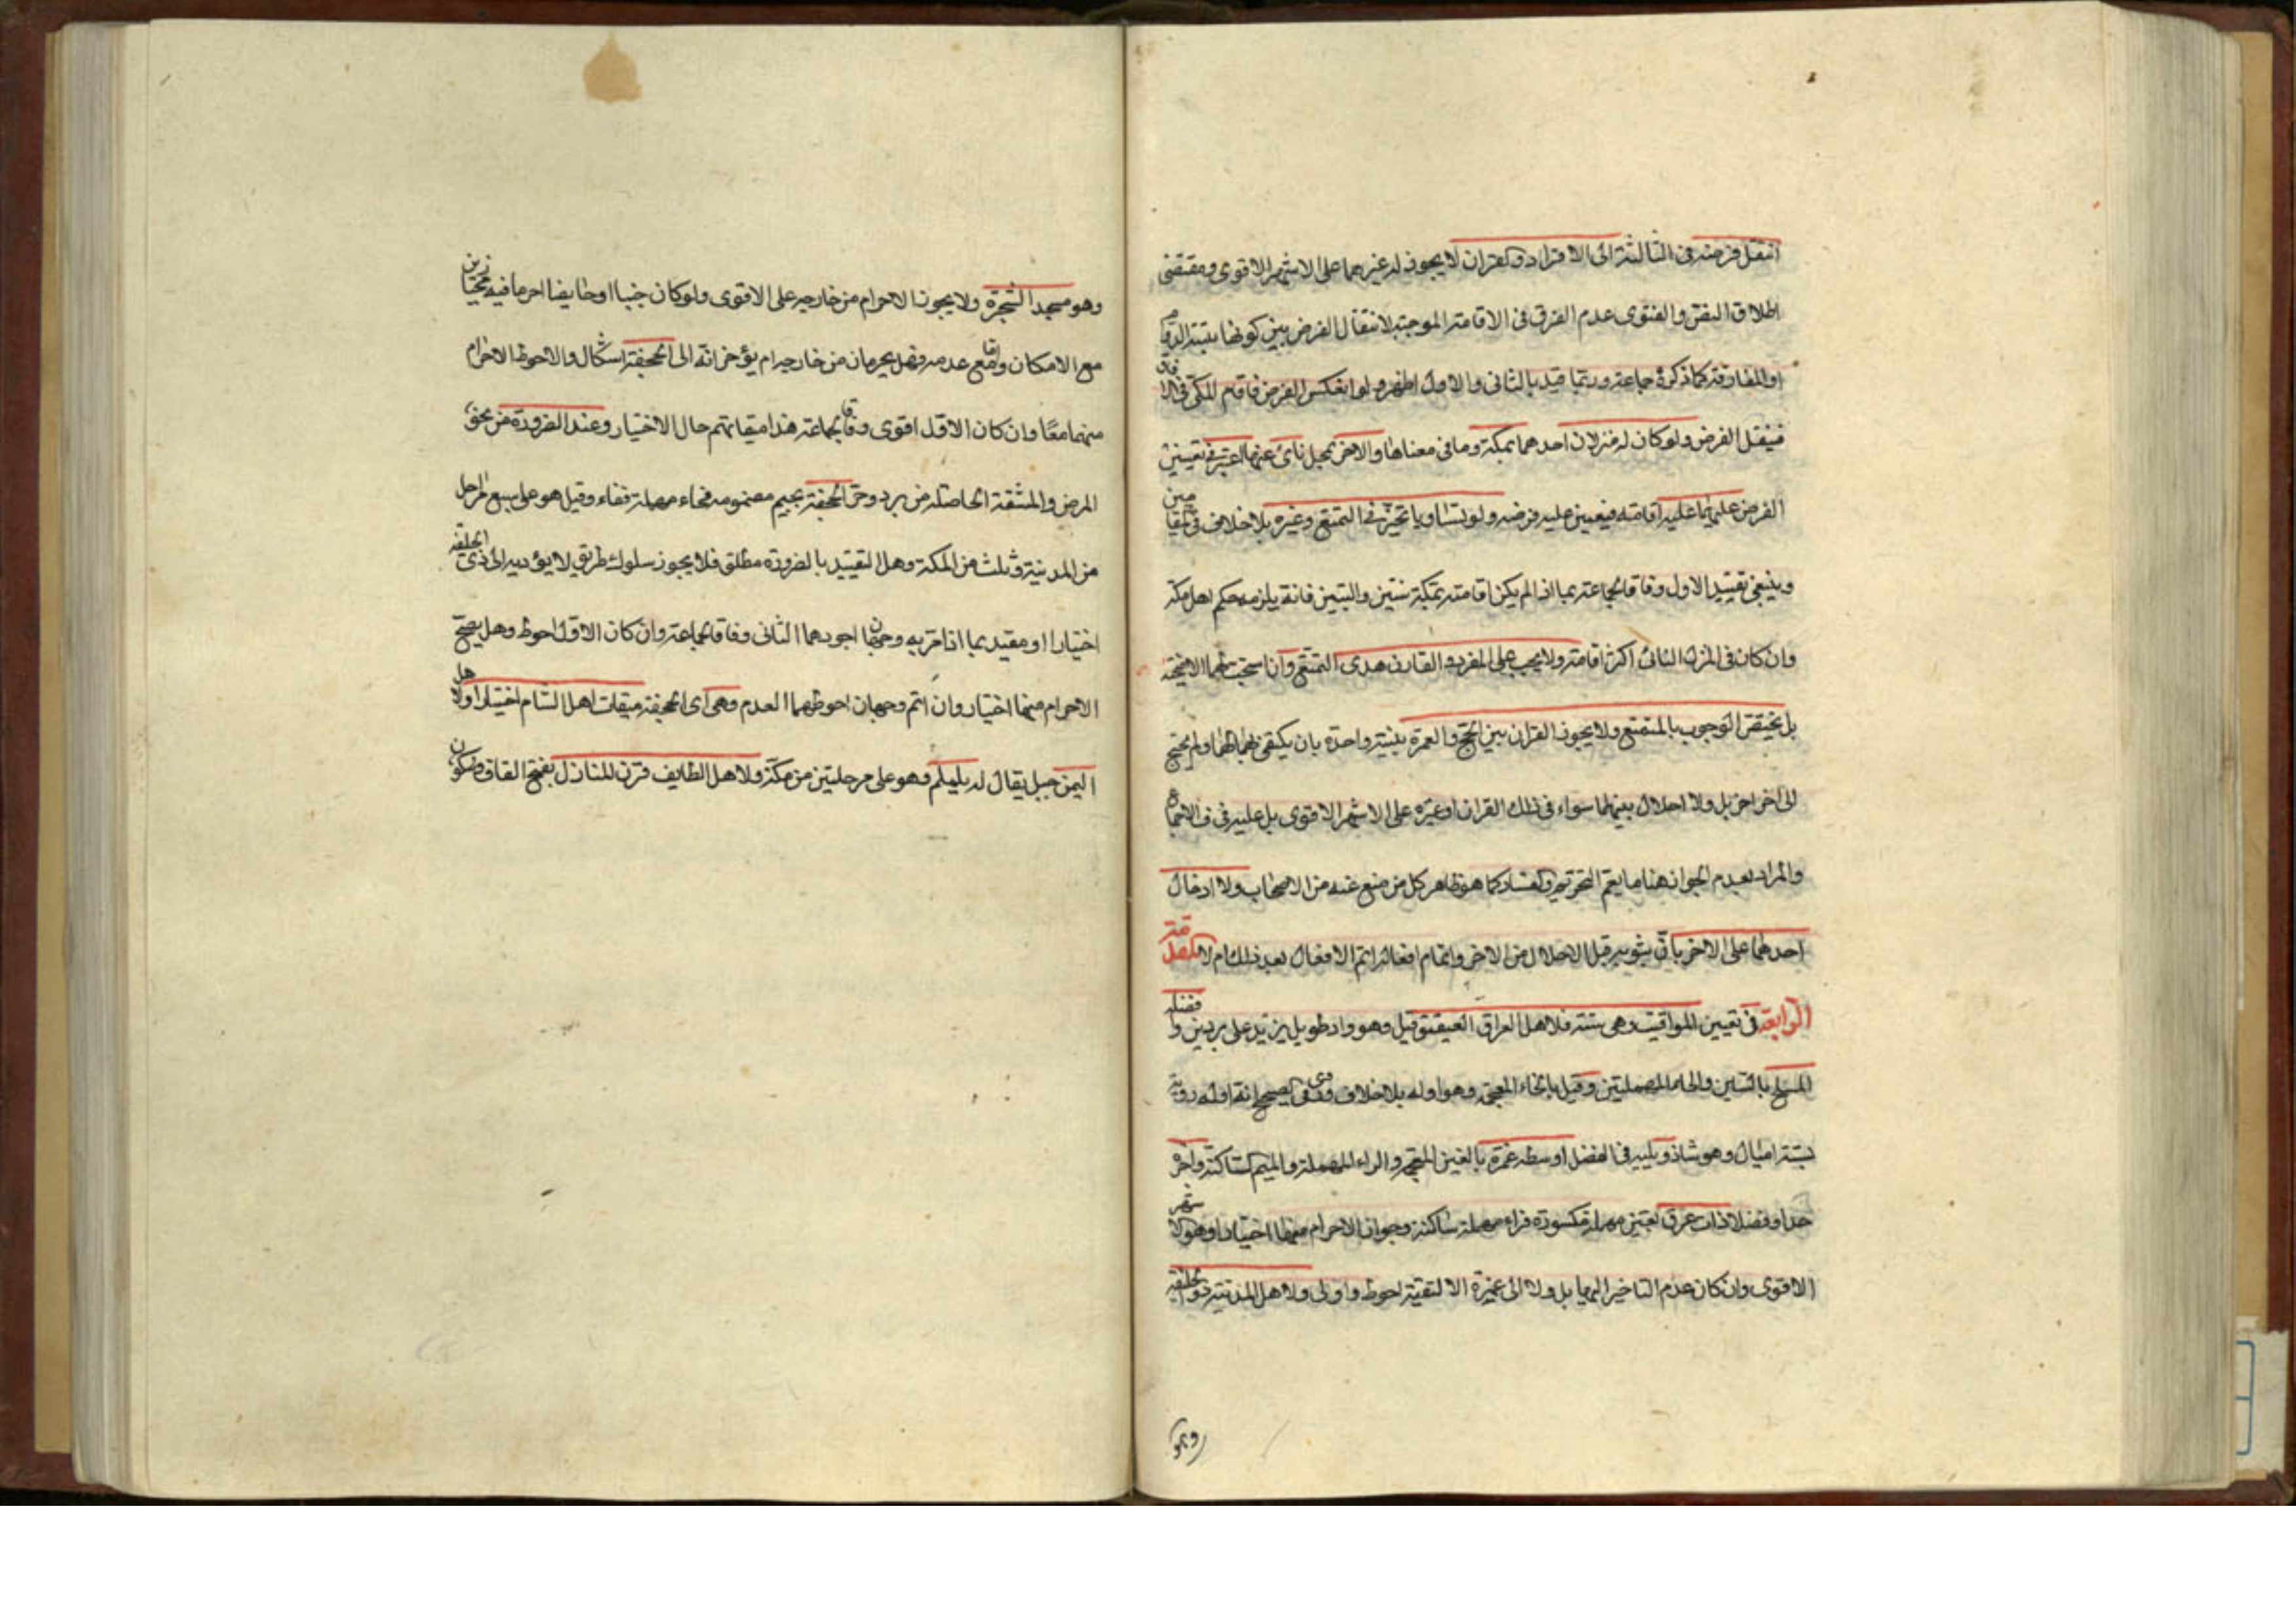 انتقل فرضه في الثالثة الى الافراد والقران لا يجوز له غيرهما على الاشهر الاقوى ومقتضى
اطلاق النص والفتوى عدم الفرق في الاقامة الموجبة لانتقال الفرض بين كونها بنية الدوام
او المفارقة كما ذكره جماعة وربما قيد بالثاني والاول اظهر ولو انعكس الفرض فاقام المكي في الافاق
فينقل الفرض ولو كان له منزلان احدهما بمكة وما في معناها والاخر بمحل نائ عنها اعتبر في تعيين
الفرض عليه اقامته فيعين عليه فرضه ولو تساويا تخير في التمتع وغيره بلا خلاف في المقامين
وينبغي تقييد الاول وفاقا لجماعة بما اذا لم يكن اقامته بمكة سنتين والتين فانه يلزمه حكم اهل مكة
وان كان في المنزل الثاني اكثر اقامة ولا يجب على المفرد والقارن هدى التمتع وان استحب لهما الاضحية
بل يختص الوجوب بالمتمتع ولا يجوز القران بين الحج والعمرة بنية واحدة بان يكتفي بها لهما ولم يحتج
الى اخر احرام بل ولا احلال بينهما سواء في ذلك القران وغيره على الاشهر الاقوى بل عليه في ف الاجماع
والمراد بعدم الجواز هنا ما يعم التحريم والفساد كما هو ظاهر كل من منع عنه من الاصحاب ولا ادخال
احدهما على الاخر بان ينويه قبل الاحلال من الاخر واتمام افعاله اتم الافعال بعد ذلك ام لا المقدمة
الرابعة في تعيين المواقيت وهي ستة فلاهل العراق العقيق قيل وهو واد طويل يزيد على بريدين وافضله
المسلح بالسين والحاء المهملتين وقيل بالخاء المعجمة وهو اوله بلا خلاف وفي الصحيح انه اوله دونه
بستة اميال وهو شاذ ويليه في الفضل اوسطه غمرة بالغين المعجمة والراء المهملة والميم الساكنة واخره
حدا وفضلا ذات عرق بعين مهملة مكسورة فراء مهملة ساكنة وجواز الاحرام منها اختيارا وهو الاشهر
الاقوى وان كان عدم التاخير اليها بل ولا الى غمرة الا لتقية احوط واولى ولاهل المدينة ذو الحليفة
وهو
وهو مسجد الشجرة ولا يجوز الاحرام من خارجه على الاقوى ولو كان جنبا او حايضا احرما فيه مجتازين
مع الامكان واما مع عدمه فهل يحرمان من خارجه ام يؤخرانه الى الجحفة اشكال والاحوط الاحرام
منهما معًا وان كان الاول اقوى وفاقا لجماعة هذا ميقاتهم حال الاختيار وعند الضرورة من نحو
المرض والمشقة الحاصلة من برد وحر الجحفة بجيم مضمومه فحاء مهملة ففاء وقيل هو على سبع مراحل
من المدينة وثلث من المكة وهل التقييد بالضرورة مطلق فلا يجوز سلوك طريق لا يؤديه الى ذي الحليفة
اختيارا او مقيد بما اذا مر به وجهان اجودهما الثاني وفاقا لجماعة وان كان الاول احوط وهل يصح
الاحرام منها اختيار وان اثم وجهان احوطهما العدم وهي اى الجحفة ميقات اهل الشام اختيارا ولاهل
اليمن جبل يقال له يلملم وهو على مرحلتين من مكة ولاهل الطايف قرن المنازل بفتح القاف وسكون